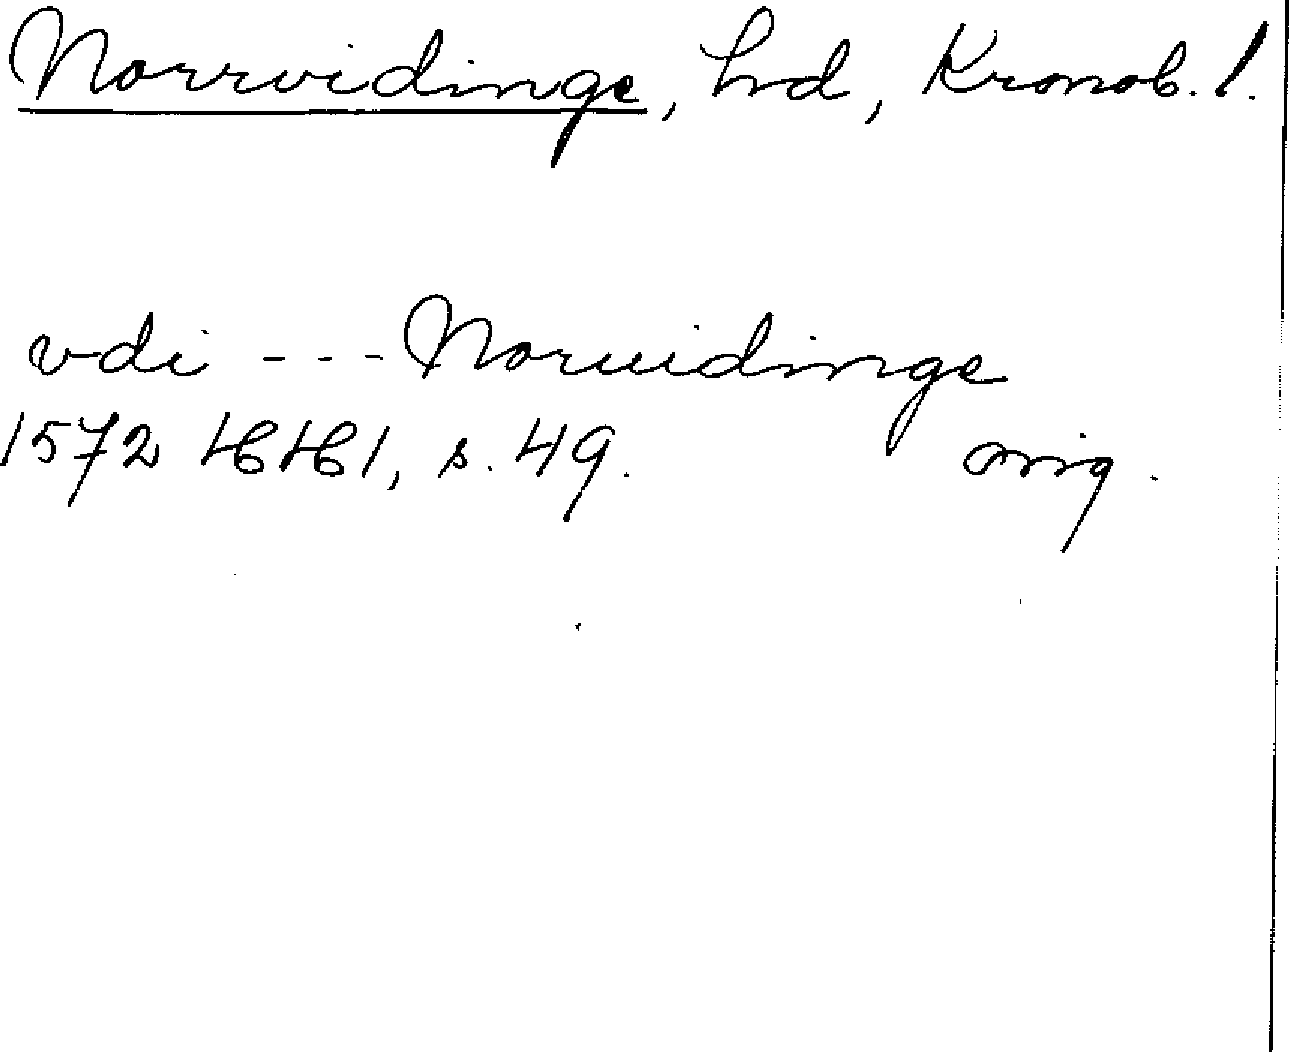 Norrvidinge, hd, Kronob. l.
vdi --- Noruidinge
1572 HH 1, s. 49. orig.